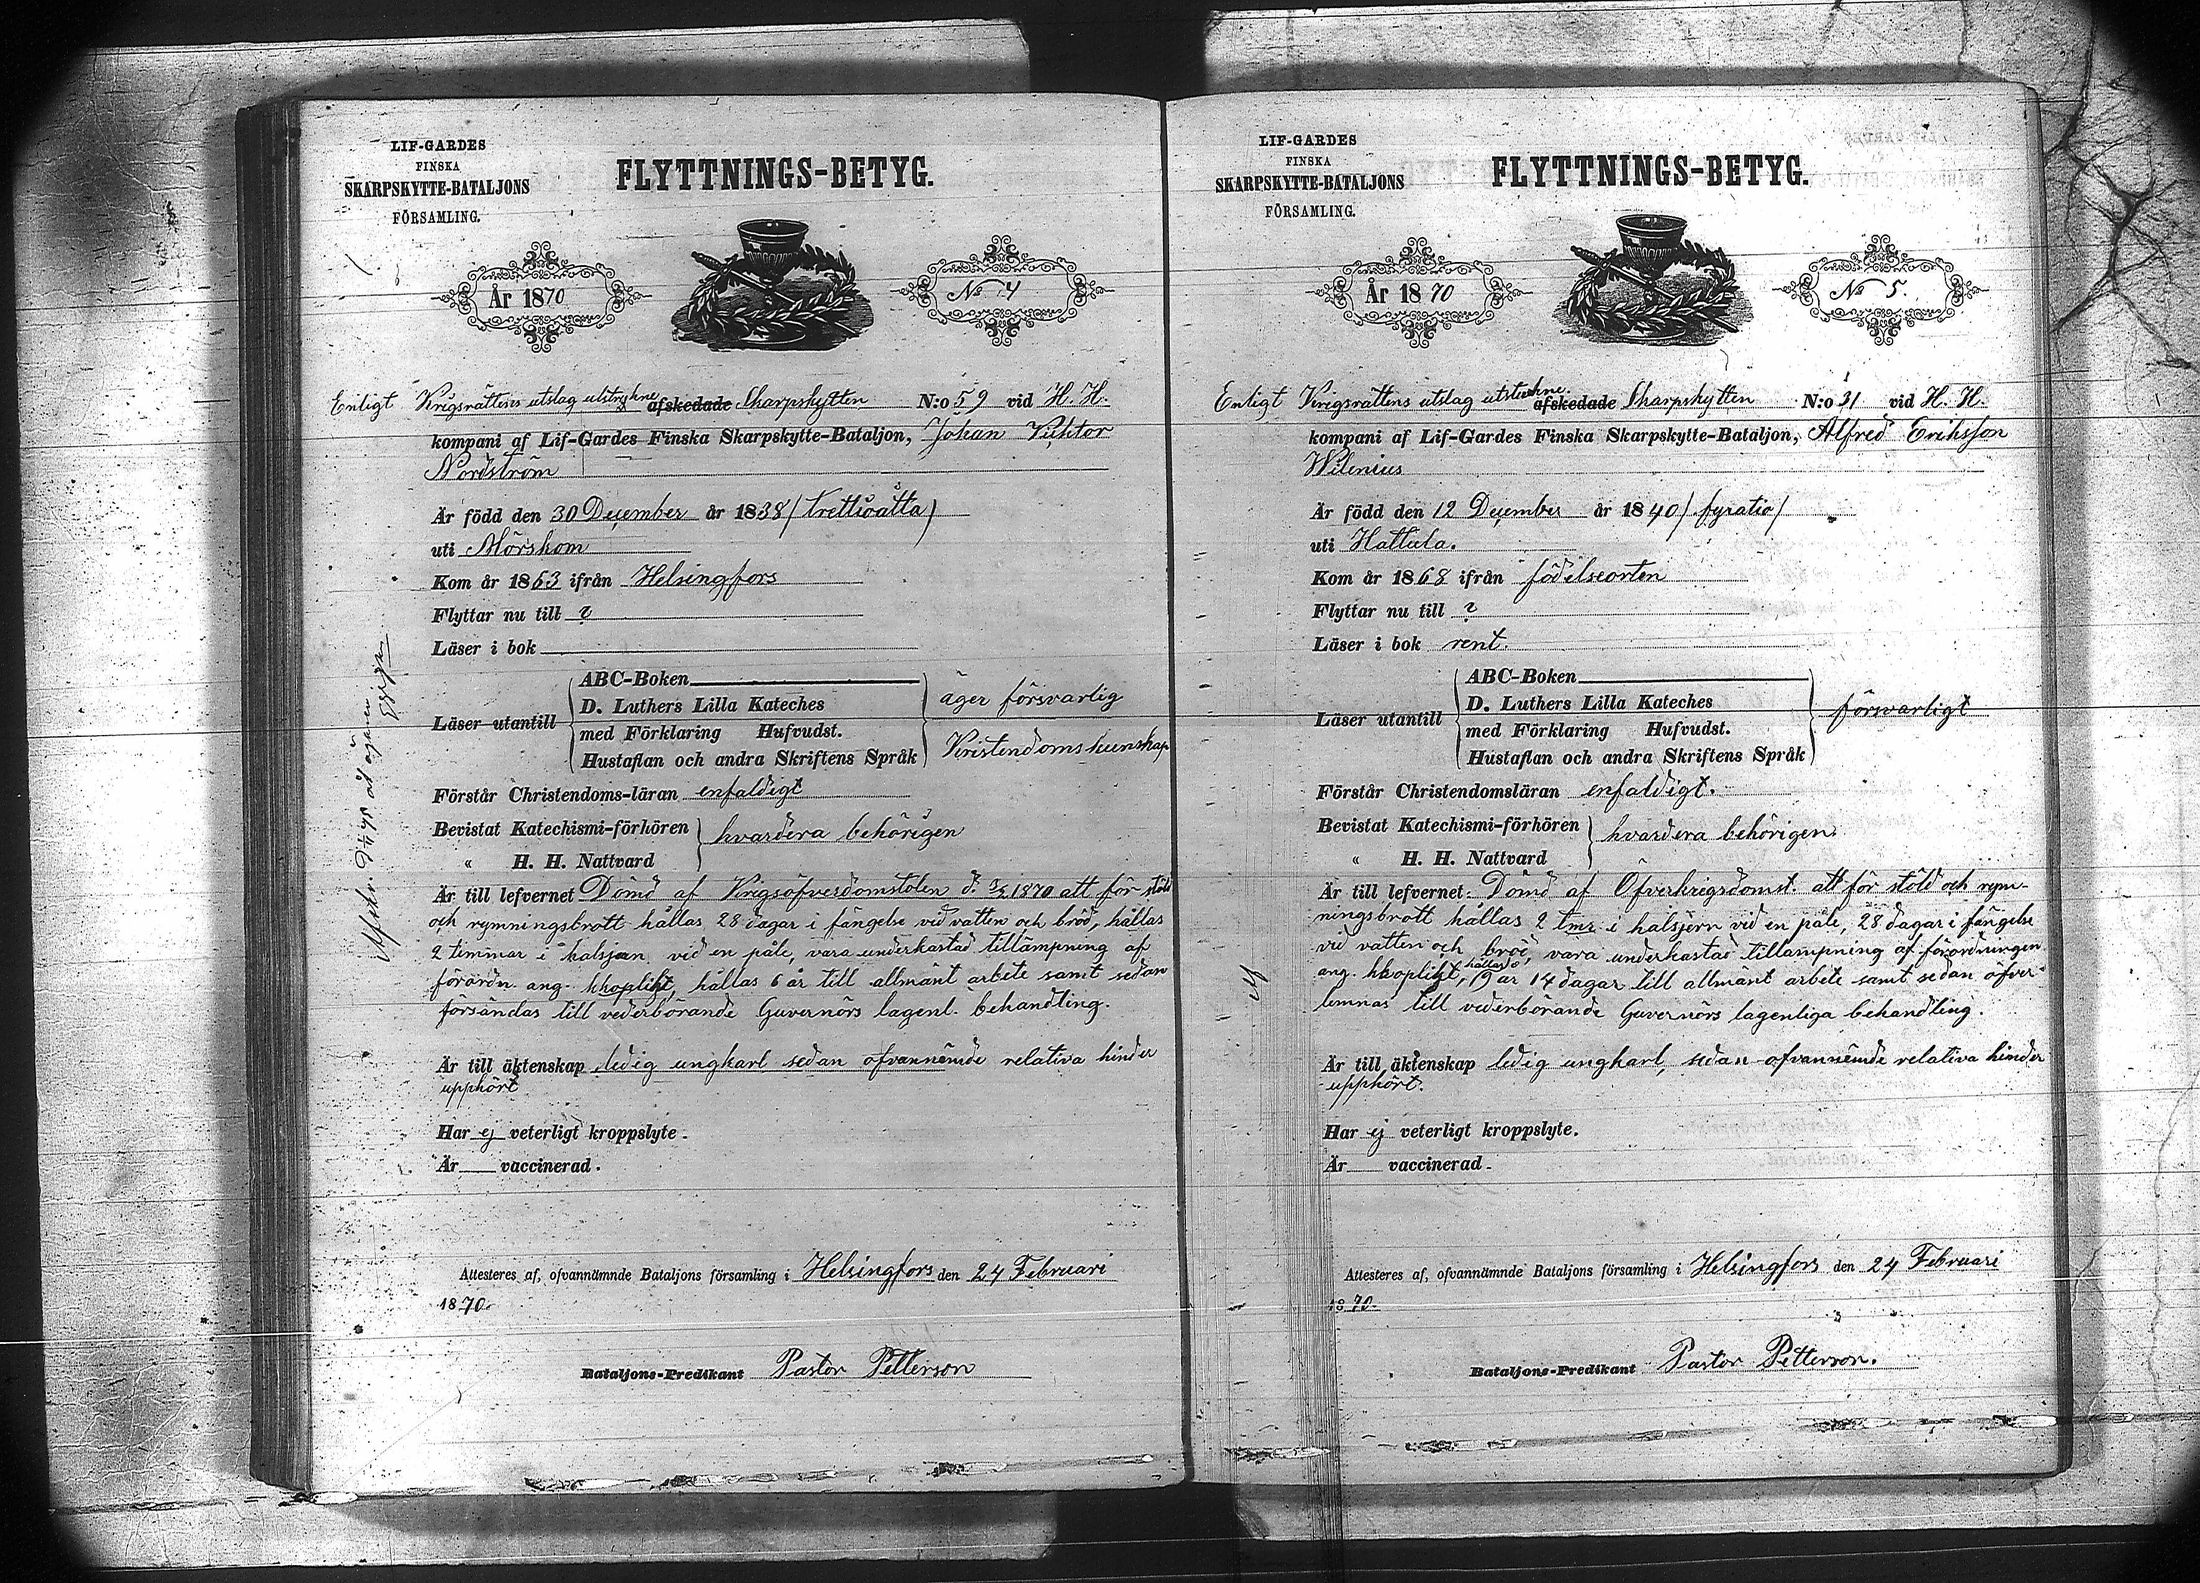 LIF-GARDES
FINSKA
SKARPSKYTTE-BATALJONS
FÖRSAMLING.
FLYTTNINGS-BETYG.
År 1870
No 4
Enligt Krigsrättens utslag utstrukne afskedade Skarpskytten N:o 59 vid H. H.
kompani af Lif-Gardes Finska Skarpskytte-Bataljon, Johan Viktor
Nordström
Är född den 30 December år 1838 (trettioåtta)
uti Mörskom
Kom år 1863 ifrån Helsingfors
Flyttar nu till ?
Läser i bok
Läser utantill
ABC-Boken
D. Luthers Lilla Kateches
med Förklaring Hufvudst.
Hustaflan och andra Skriftens Språk
äger försvarlig
Kristendomskunskap
Förstår Christendoms-läran enfaldigt
Bevistat Katechismi-förhören
" H. H. Nattvard
hvardera behörigen
Är till lefvernet Dömd af Krigsöfverdomstolen d. 3/2 1870 att för stöld
och rymningsbrott hållas 28 dagar i fängelse vid vatten och bröd, hållas
2 timmar i halsjärn vid en påle, vara underkastad tillämpning af
förordn. ang. khoplikt, hållas 6 år till allmänt arbete samt sedan
försändas till vederbörande Guvernörs lagenl. behandling.
Är till äktenskap ledig ungkarl sedan ofvannämde relativa hinder
upphört
Har ej veterligt kroppslyte.
Är vaccinerad.
Attesteres af, ofvannämnde Bataljons församling i Helsingfors den 24 Februari
1870.
Bataljons-Predikant Pastor Petterson
LIF-GARDES
FINSKA
SKARPSKYTTE-BATALJONS
FÖRSAMLING.
FLYTTNINGS-BETYG.
År 1870
No 5.
Enligt Krigsrättens utslag utstrukne afskedade Skarpskytten N:o 31 vid H. H.
kompani af Lif-Gardes Finska Skarpskytte-Bataljon, Alfred Eriksson
Wilenius
Är född den 12 December år 1840 / fyratio /
uti Hattula.
Kom år 1868 ifrån födelseorten
Flyttar nu till ?
Läser i bok rent.
Läser utantill
ABC-Boken
D. Luthers Lilla Kateches
med Förklaring Hufvudst.
Hustaflan och andra Skriftens Språk
försvarligt
Förstår Christendomsläran enfaldigt.
Bevistat Katechismi-förhören
" H. H. Nattvard
hvardera behörigen
Är till lefvernet: Dömd af Öfverkrigsdomst. att för stöld och rym-
ningsbrott hållas 2 tmr i halsjern vid en påle, 28 dagar i fängelse
vid vatten och bröd, vara underkastad tillämpning af förordningen
ang. khoplikt, hållas år 14 dagar till allmänt arbete samt sedan öfver-
lemnas till vederbörande Guvernörs lagenliga behandling.
Är till äktenskap ledig ungkarl, sedan ofvannämde relativa hinder
upphört.
Har ej veterligt kroppslyte.
Är vaccinerad.
Attesteres af, ofvannämnde Bataljons församling i Helsingfors den 24 Februari
1870.
Bataljons-Predikant Pastor Petterson.